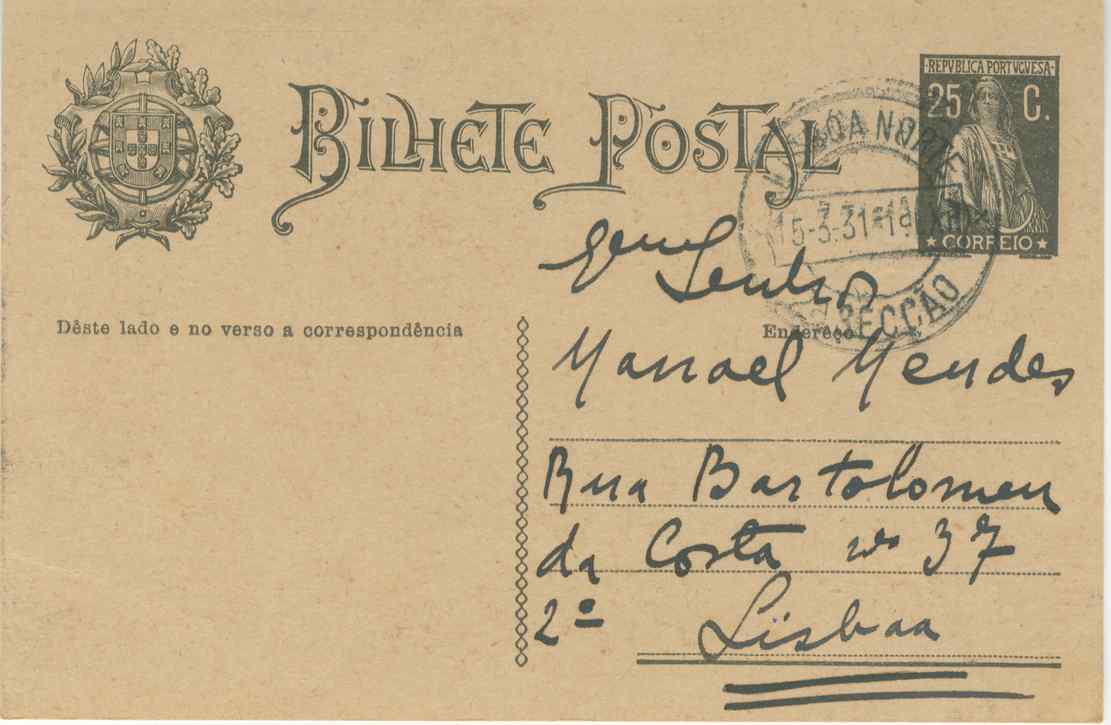 BILHETE POSTAL
REPVBLICA PORTVGVESA
25 C.
CORREIO
LISBOA NORTE
15-3.31
SECÇÃO
Dêste lado e no verso a correspondência
Endereço
Senhor
Manoel Mendes
Rua Bartolomeu
da Costa nº 37
2º Lisboa